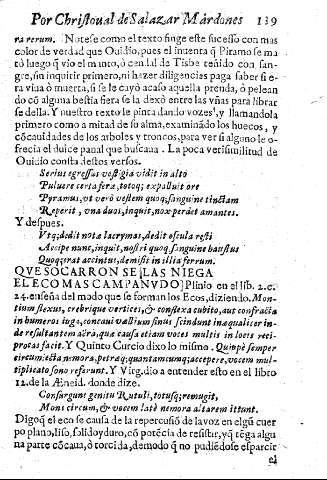 Por Christoual de Salazar Mardones 139
ra rerum. Notese como el texto finge este sucesso con mas
color de verdad que Ouidio, pues el inuenta q̃ Piramo se ma
tò luego q̃ vio el manto, ò cendal de Tisbe teñido con san-
gre, sin inquirir primero, ni hazer diligencias paga saber si e-
ra viua ò muerta, si se le cayò acaso aquella prenda, ò pelean
do cõ alguna bestia fiera se la dexò entre las vñas para librar
se della. Y nuestro texto le pinta dando vozes, y llamandola
primero como a mitad de su alma, examinãdo los huecos, y
cõcauidades de los arboles y troncos, para ver si alguno le o-
frecia el dulce panal que buscaua. La poca verisimilitud de
Ouidio consta destos versos.
Serius egressus vestigia vidit in alto
Puluere certa feræ, totoq; expalluit ore
Pyramus, vt verò vestem quoq; sanguine tinctam
Reperit, vna duos, inquit, nox perdet amantes.
Y despues.
Vtq; dedit nota lacrymas, dedit oscula vesti
Accipe nunc, inquit, nostri quoq; sanguine haustus
Quoq; erat accintus, demisit in illia ferrum.
QVE SOCARRON SE LAS NIEGA
EL ECO MAS CAMPANVDO] Plinio en el lib. 2. c.
24. enseña del modo que se forman los Ecos, diziendo. Mon-
tium flexus, crebrique vertices, & conflexa cubito, aut confracta
in humeros iuga, concaui vallium sinus scindunt inæqualiter in-
de resultantem aëra, quæ causa etiam voces multis in locis reci-
procas facit. Y Quinto Curcio dixo lo mismo. Quippè semper
circumiecta nemora, petræq; quantamcunq; accepere, vocem mul-
tiplicato sono referunt. Y Virg. dio a entender esto en el libro
12. de la Æneid. donde dize.
Consurgunt genitu Rutuli, totusq; remugit,
Mons circum, & vocem latè nemora altarem ittunt.
Digo q̃ el eco se causa de la repercusiõ de la voz en algũ cuer
po plano, liso, solido y duro, cõ potẽcia de resistir, y q̃ tẽga algu
na parte cõcaua, ò torcida, de modo q̃ no pudiẽdose esparcir
el